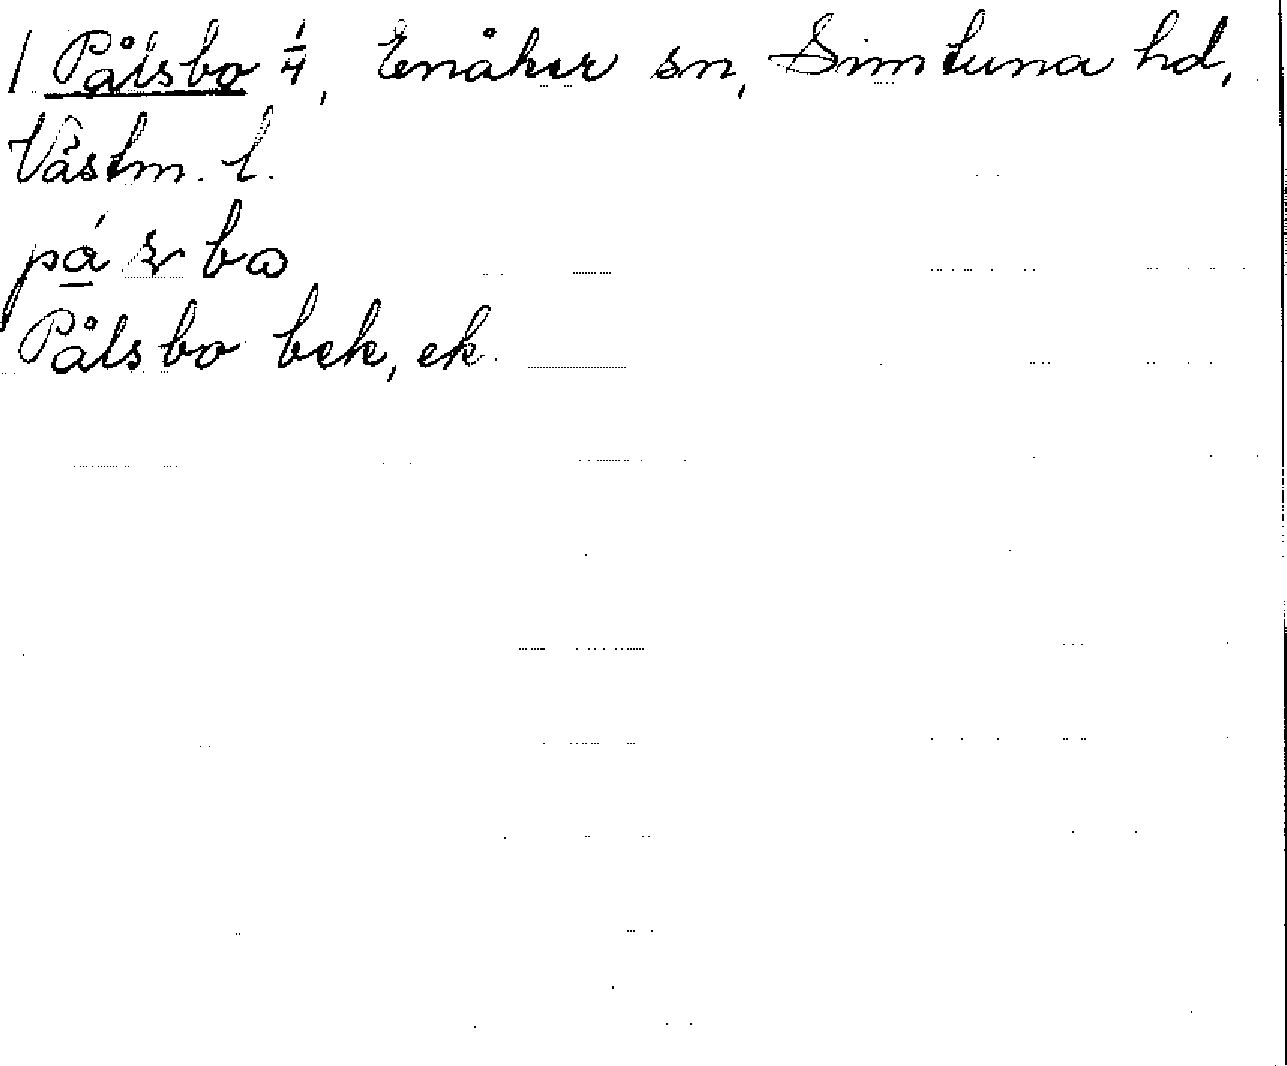 1 Pålsbo 1/4, Enåker sn, Simtuna hd,
Västm. l.
Pålsbo bek, ek.